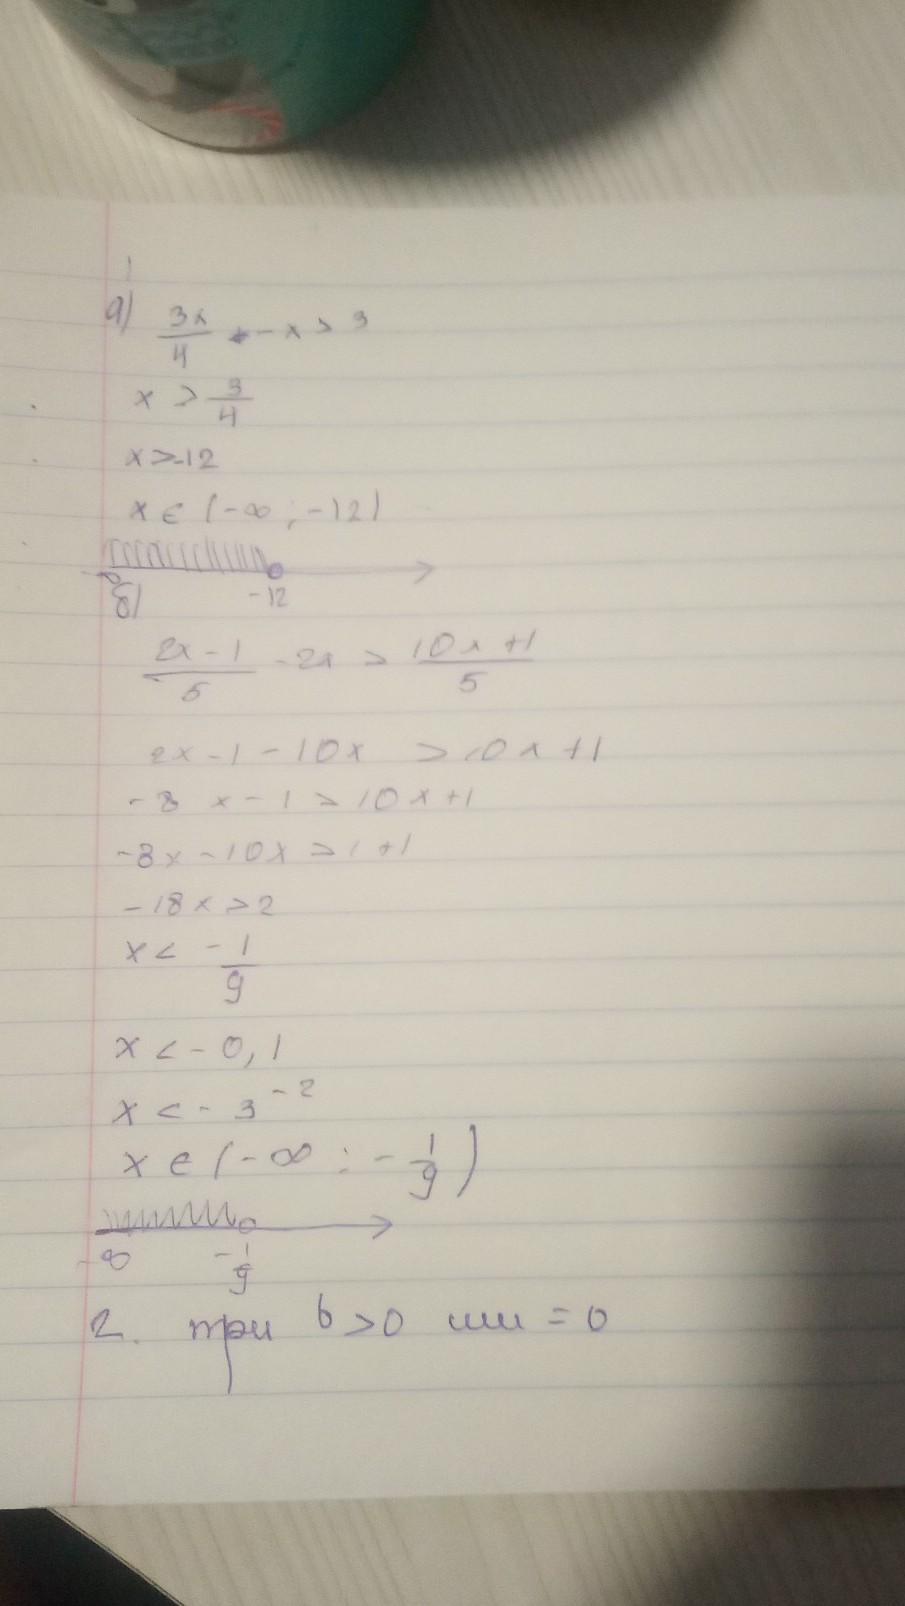 1
а) 3x/4 - x > 3
x > 3/4
x > -12
x ∈ (-∞ ; -12)
-12
б)
2x - 1/5 - 2x > 10x + 1/5
2x - 1 - 10x > 10x + 1
-8 x - 1 > 10x + 1
-8x - 10x > 1 + 1
-18x > 2
x < - 1/9
x < - 0,1
x < - 3^-2
x ∈ (-∞ : - 1/9)
-∞ - 1/9
2. при b > 0 или = 0